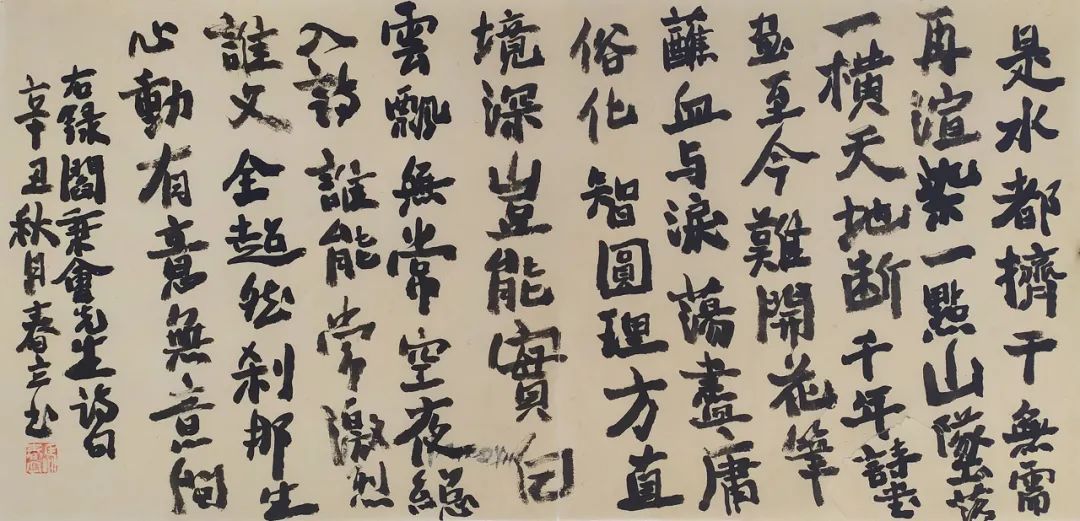 是水都擠干無需
再渲紫一點山墜落
一橫天地断千年詩書
畫至今難開花筆
蘸血与淚蕩盡庸
俗化智圓理方直
境深豈能實白
雲飄無常空夜總
入詩誰能常激烈
誰文全超然刹那生
心動有意無意間
右錄閻秉會先生詩句
辛丑秋月春立书